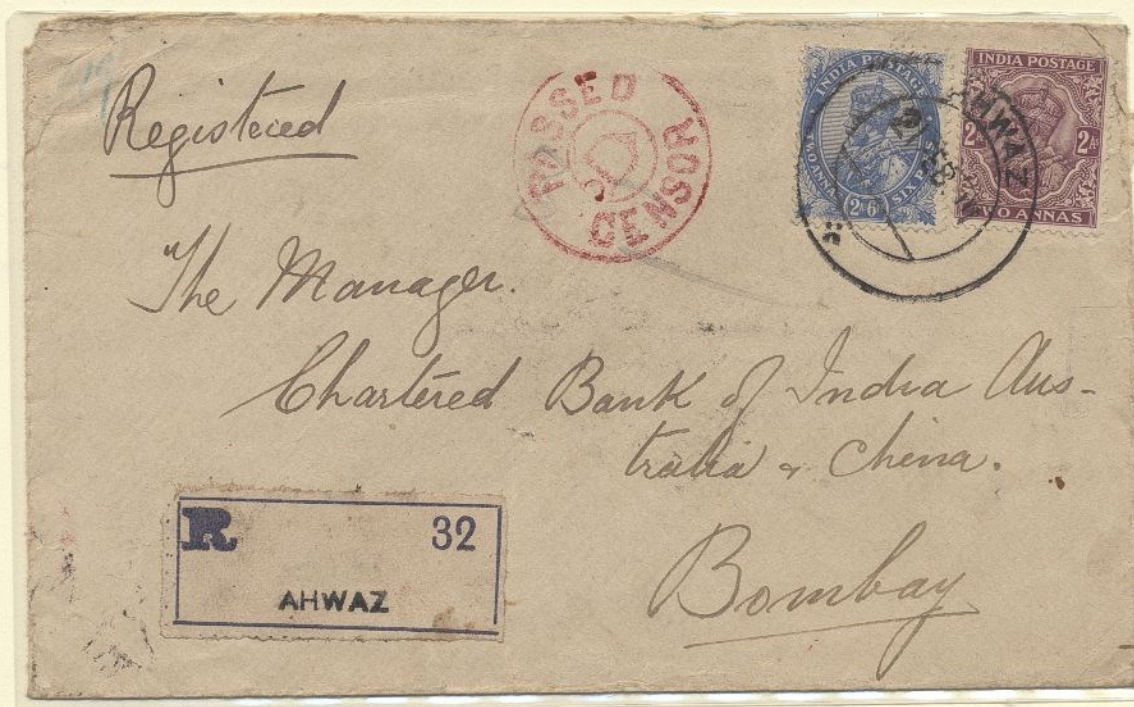 Registered
PASSED
CENSOR
INDIA POSTAGE
2A6P
SIX PIES
INDIA POSTAGE
2As 2As
TWO ANNAS
AHWAZ
The Manager.
Chartered Bank of India Aus-
tralia & China.
Bombay
R 32
AHWAZ